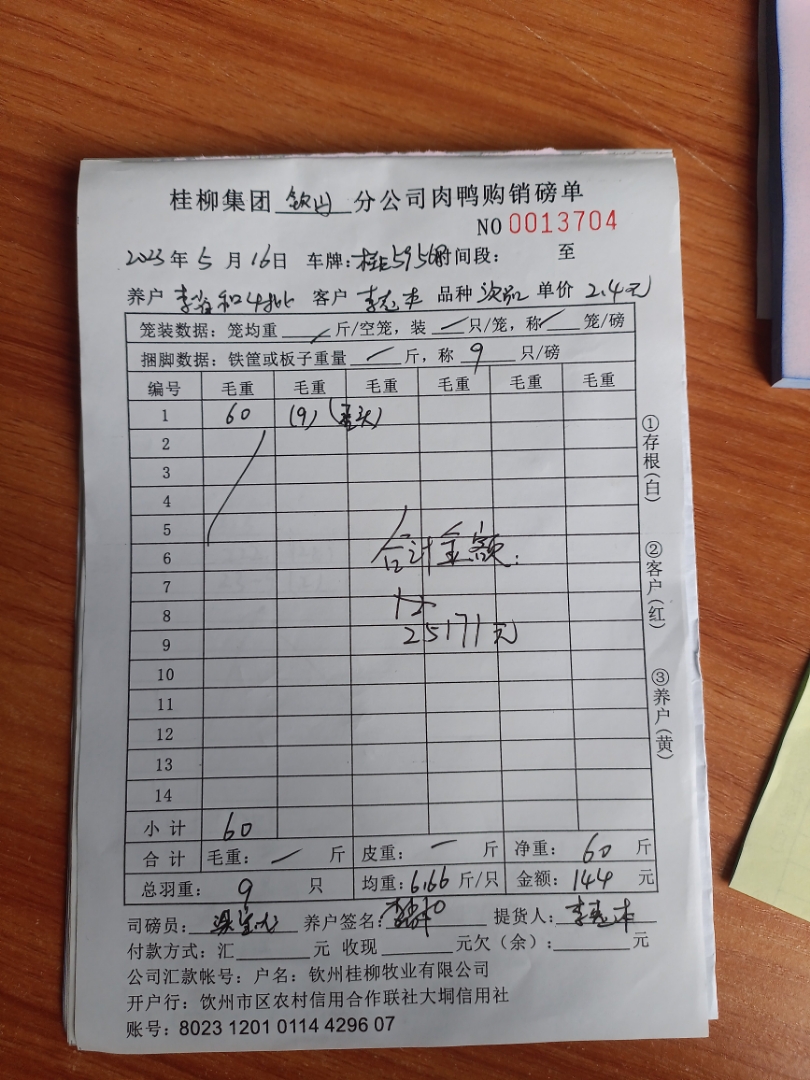 桂柳集团 钦州 分公司肉鸭购销磅单
NO 0013704
2023 年 5 月 16 日 车牌: 5956 时间段: 至
养户 李 和4批 客户 李 品种 次品 单价 2.4元
笼装数据: 笼均重 / 斤/空笼, 装 / 只/笼, 称 / 笼/磅
捆脚数据: 铁筐或板子重量 / 斤, 称 9 只/磅
编号 毛重 毛重 毛重 毛重 毛重 毛重
1 60 (9)
2
3
4
5
6
合计金额:
7
8
25171元
9
10
11
12
13
14
小计 60
合计 毛重: / 斤 皮重: — 斤 净重: 60 斤
总羽重: 9 只 均重: 6.66 斤/只 金额: 144 元
司磅员: 养户签名: 提货人: 李
付款方式: 汇 元 收现 元欠(余): 元
公司汇款帐号: 户名: 钦州桂柳牧业有限公司
开户行: 钦州市区农村信用合作联社大垌信用社
账号: 8023 1201 0114 4296 07
①存根(白)
②客户(红)
③养户(黄)